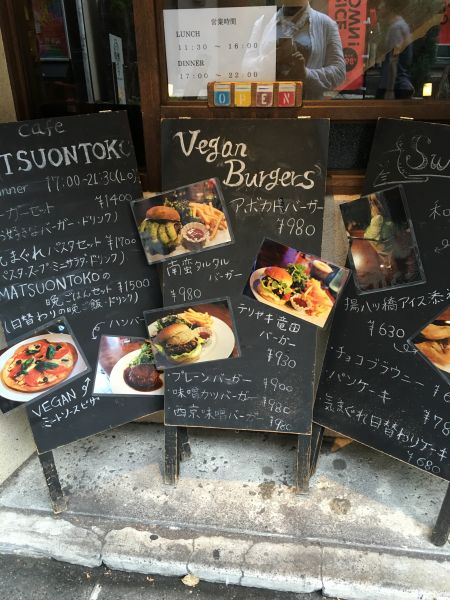 営業時間
LUNCH
11:30 ～ 16:00
DINNER
17:00 ～ 22:00
OPEN
Cafe
MATSUONTOKO
Dinner 17:00-21:30(LO)
バーガーセット ¥1400
(お好きなバーガー・ドリンク)
気まぐれパスタセット ¥1700
(パスタ・スープ・ミニサラダ・ドリンク)
MATSUONTOKOの
晩ごはんセット ¥1500
(日替りの晩ご飯・ドリンク)
ハンバ
VEGAN
ミートソースピザ
Vegan
Burgers
アボカドバーガー
¥980
南蛮タルタル
バーガー
¥980
テリヤキ竜田
バーガー
¥930
プレーンバーガー ¥900
味噌カツバーガー ¥980
西京味噌バーガー ¥980
Sw
和
揚八ッ橋アイス添
¥630
チョコブラウニー
パンケーキ
¥78
気まぐれ日替わりケーキ
¥680